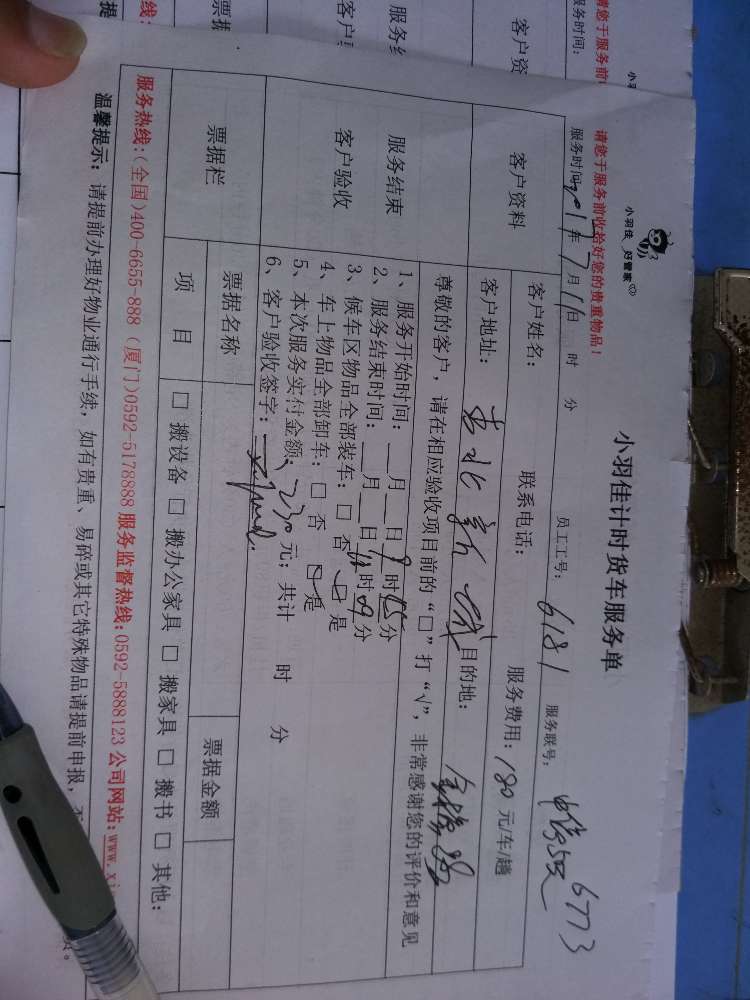 小羽佳 好管家
小羽佳计时货车服务单
请您于服务前收拾好您的贵重物品！
服务时间：2017年7月11日 时 分 员工工号：6181 服务联号：6773
客户资料 客户姓名： 联系电话： 服务费用：180元/车/趟
客户地址：古北新城 目的地：
服务结束
客户验收
尊敬的客户，请在相应验收项目前的“□”打“√”，非常感谢您的评价和意见
1、服务开始时间：__月__日9时55分
2、服务结束时间：__月__日11时09分
3、候车区物品全部装车：□ 否 ☑ 是
4、车上物品全部卸车：□ 否 ☑ 是
5、本次服务实付金额：230元；共计 时 分
6、客户验收签字：
票据栏 票据名称 票据金额
项 目 □ 搬设备 □ 搬办公家具 □ 搬家具 □ 搬书 □ 其他：
服务热线：(全国)400-6655-888 (厦门)0592-5178888 服务监督热线：0592-5888123 公司网站：www.xi
温馨提示：请提前办理好物业通行手续，如有贵重、易碎或其它特殊物品请提前申报，